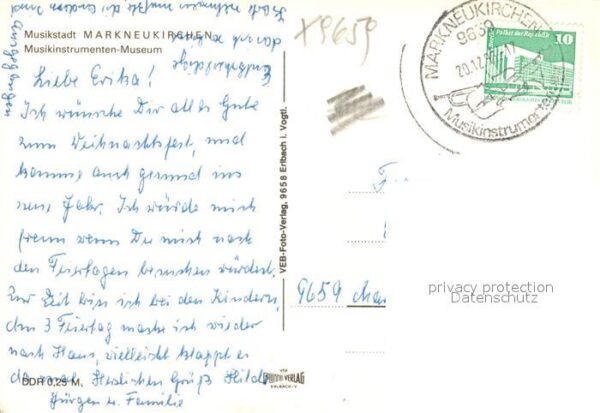 Musikstadt MARKNEUKIRCHEN
Musikinstrumenten-Museum
Liebe Erika!
Ich wünsche Dir alles Gute
zum Weihnachtsfest, und
komme auch gesund ins
neue Jahr. Ich würde mich
freuen wenn Du mich nach
den Feiertagen besuchen würdest.
Zur Zeit bin ich bei den Kindern,
den 3 Feiertag mache ich wieder
nach Haus, vielleicht klappt es
da mal. Herzlichen Gruß Hilde
Jürgen u. Familie
DDR 0,25 M
VEB-Foto-Verlag, 9658 Erlbach i. Vogtl.
VEB
FOTO VERLAG
ERLBACH-V.
X9659
MARKNEUKIRCHEN
9659
20.12.
Musikinstrumenten
Palast der Republik
10
9659
privacy protection
Datenschutz